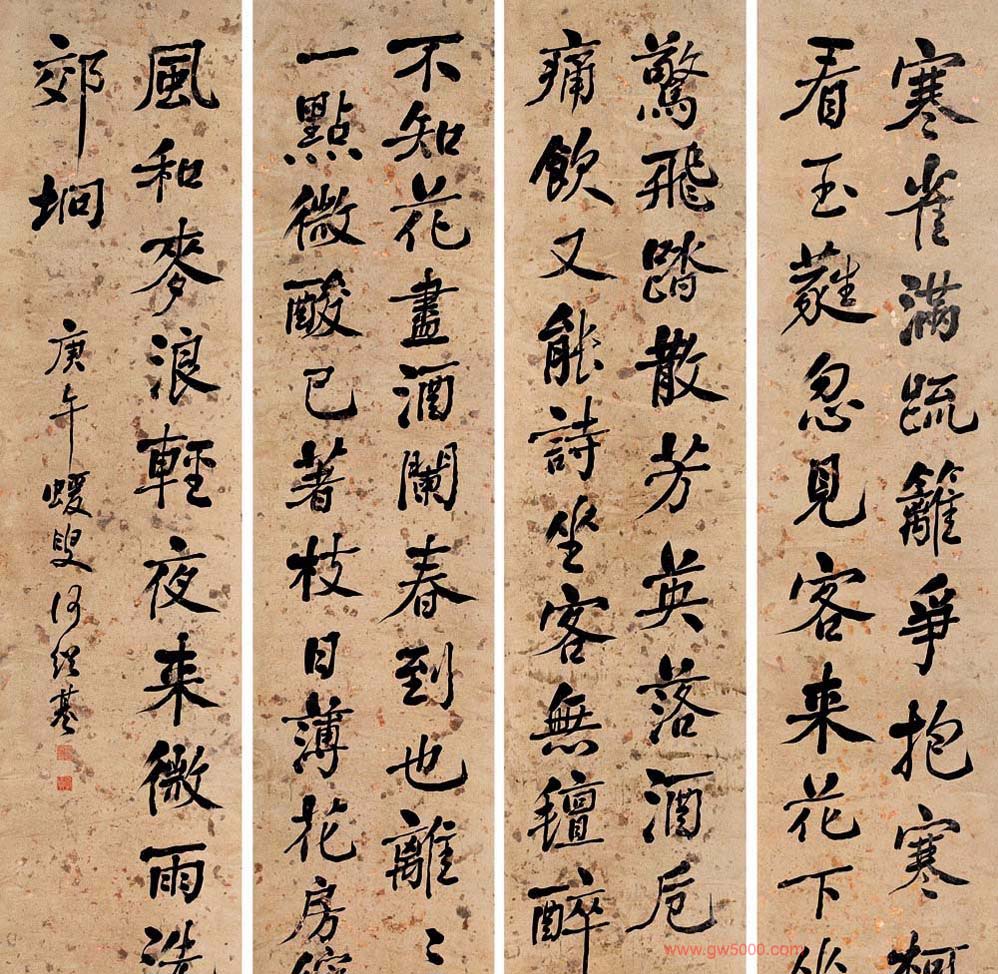 寒雀滿䟽籬爭抱寒柯
看玉蕤忽見客来花下坐
驚飛踏散芳英落酒卮
痛飲又能詩坐客無氊醉
不知花盡酒闌春到也離〻
一點微酸已著枝日薄花房綻
風和麥浪輕夜来微雨洗
郊坰
庚午蝯叟何紹基
www.gw5000.com